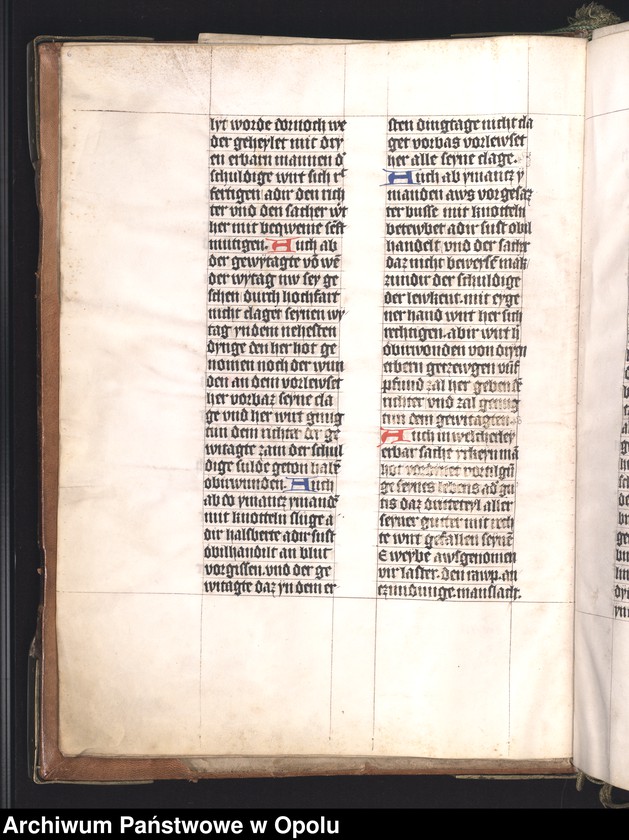 lyt worde dornoch we
der geheylet mit dry
en erbarn mannen d
schuldige wirt sich r
fertigen adir den rich
ter vnd den sacher
her mit beqweme
mutigen. Auch ab
der gewytagte
der wytag nw sey ge
schen durch hochfart
nicht claget seynen wy
tag yn dem nehesten
dynge den her hot ge
nomen noch der wun
den an dem vorlewset
her vorbaz seyne cla
ge vnd her wirt gnug
tun dem richter der ge
witagte zam der schul
dige sulde geton
obirwunden. Auch
ab do ymancz ymande
mit knotteln sluge a
dir halsberte adir sust
obilhandilt an blut
vorgissen. vnd der ge
witagte daz yn dem er
sten dingtage nicht cla
get vorbas vorlewset
her alle seyne clage.
Auch ab ymancz y
manden aws vorgesaz
ter busse mit knotteln
betewbet adir sust obil
handelt vnd der sachir
daz nicht beweysen mak
der schuldige
der lewkent. mit eyge
ner hand wirt her sich
rechtigen. abir wirt h
obirwonden von dryen
erbern getzewgen
pfund zal her geben
richter vnd zal genug
tun dem gewitagten.
Auch in welcherley
erbar sache
hot
ge seynes lebens adir gu
tis daz dritteteyl aller
seyner gutter mit rech
te wirt gefallen seyne
E weybe awsgenomen
vir laster. den rawp. an
manslacht.
Archiwum Państwowe w Opolu